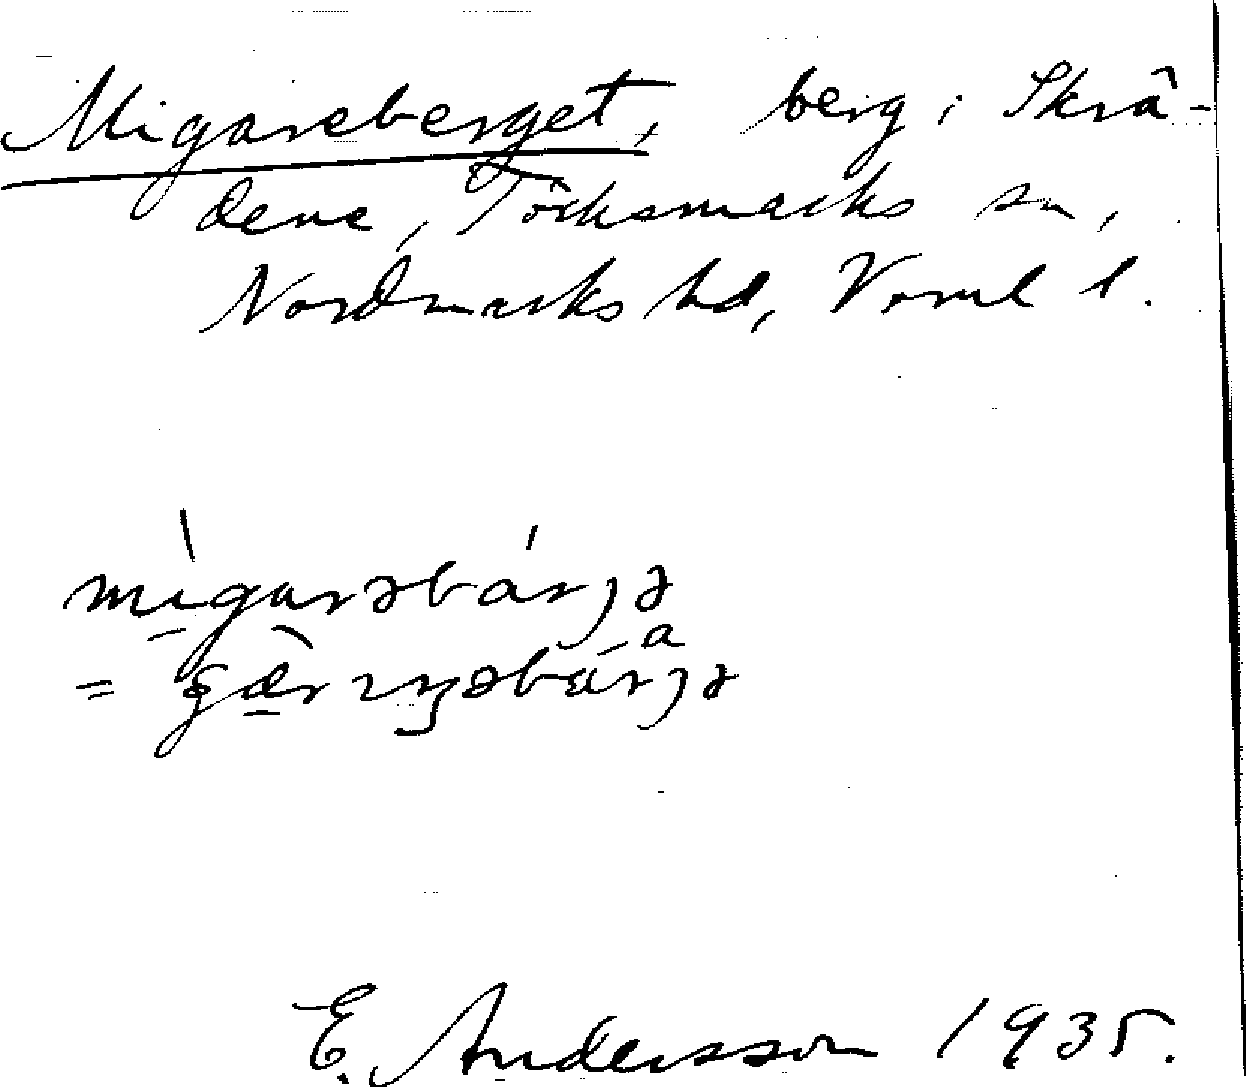 Migareberget, berg i Skrä-
dene, Töcksmarks sn,
Nordmarks hd, Värml l.
mìgarəbárjə
E. Andersson 1935.